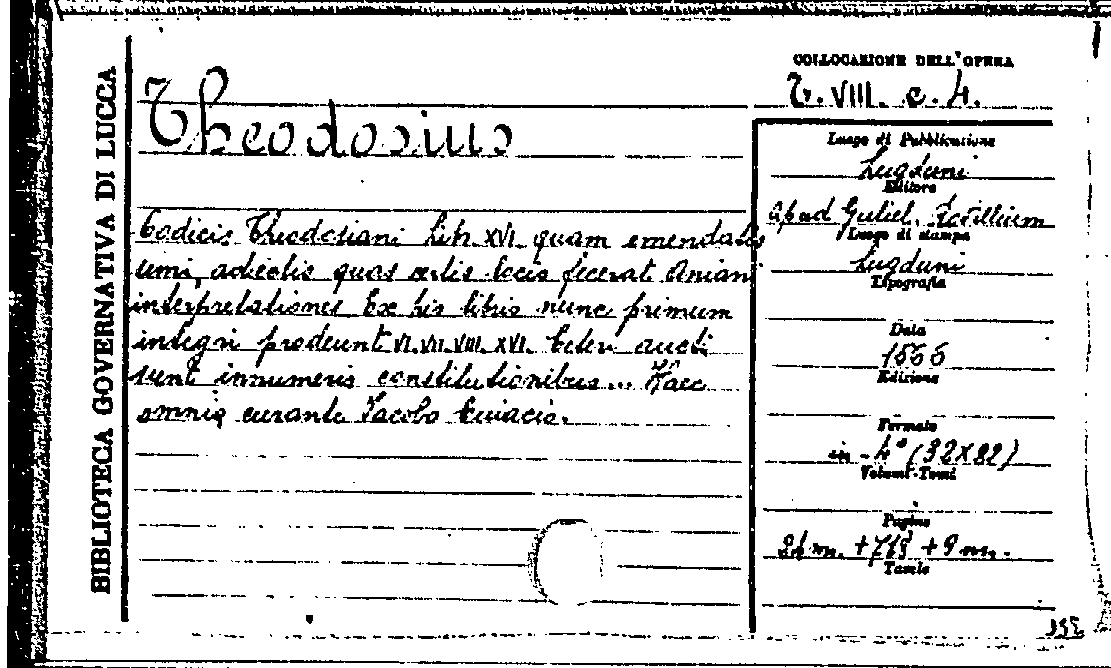 BIBLIOTECA GOVERNATIVA DI LUCCA
COLLOCAZIONE DELL'OPERA
T. VIII. c. 4.
Theodosius
Codicis Theodosiani Lib. XVI. quam emendatis
simi, adiectis quas certis locis fecerat Aniani
interpretationes Ex his libris nunc primum
integri prodeunt VI. VII. VIII. XVI. Ceteri aucti
sunt innumeris constitutionibus... Haec
omnia curante Iacobo Cuiacio.
Luogo di Pubblicazione
Lugduni
Editore
apud Guliel.
Luogo di stampa
Lugduni
Tipografia
Data
Edizione
Formato
in-4° (32X22)
Volumi-Tomi
Pagine
+ 9 nn.
Tavole